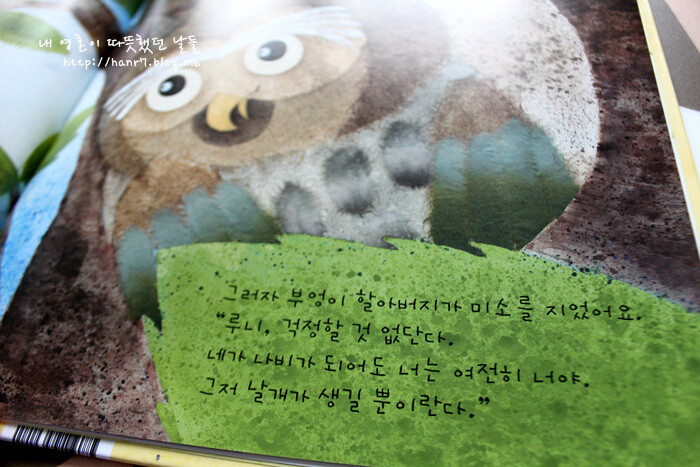 내 영혼이 따뜻했던 날들
http://hanr7.blog.me
그러자 부엉이 할아버지가 미소를 지었어요.
“루니, 걱정할 것 없단다.
네가 나비가 되어도 너는 여전히 너야.
그저 날개가 생길 뿐이란다.”